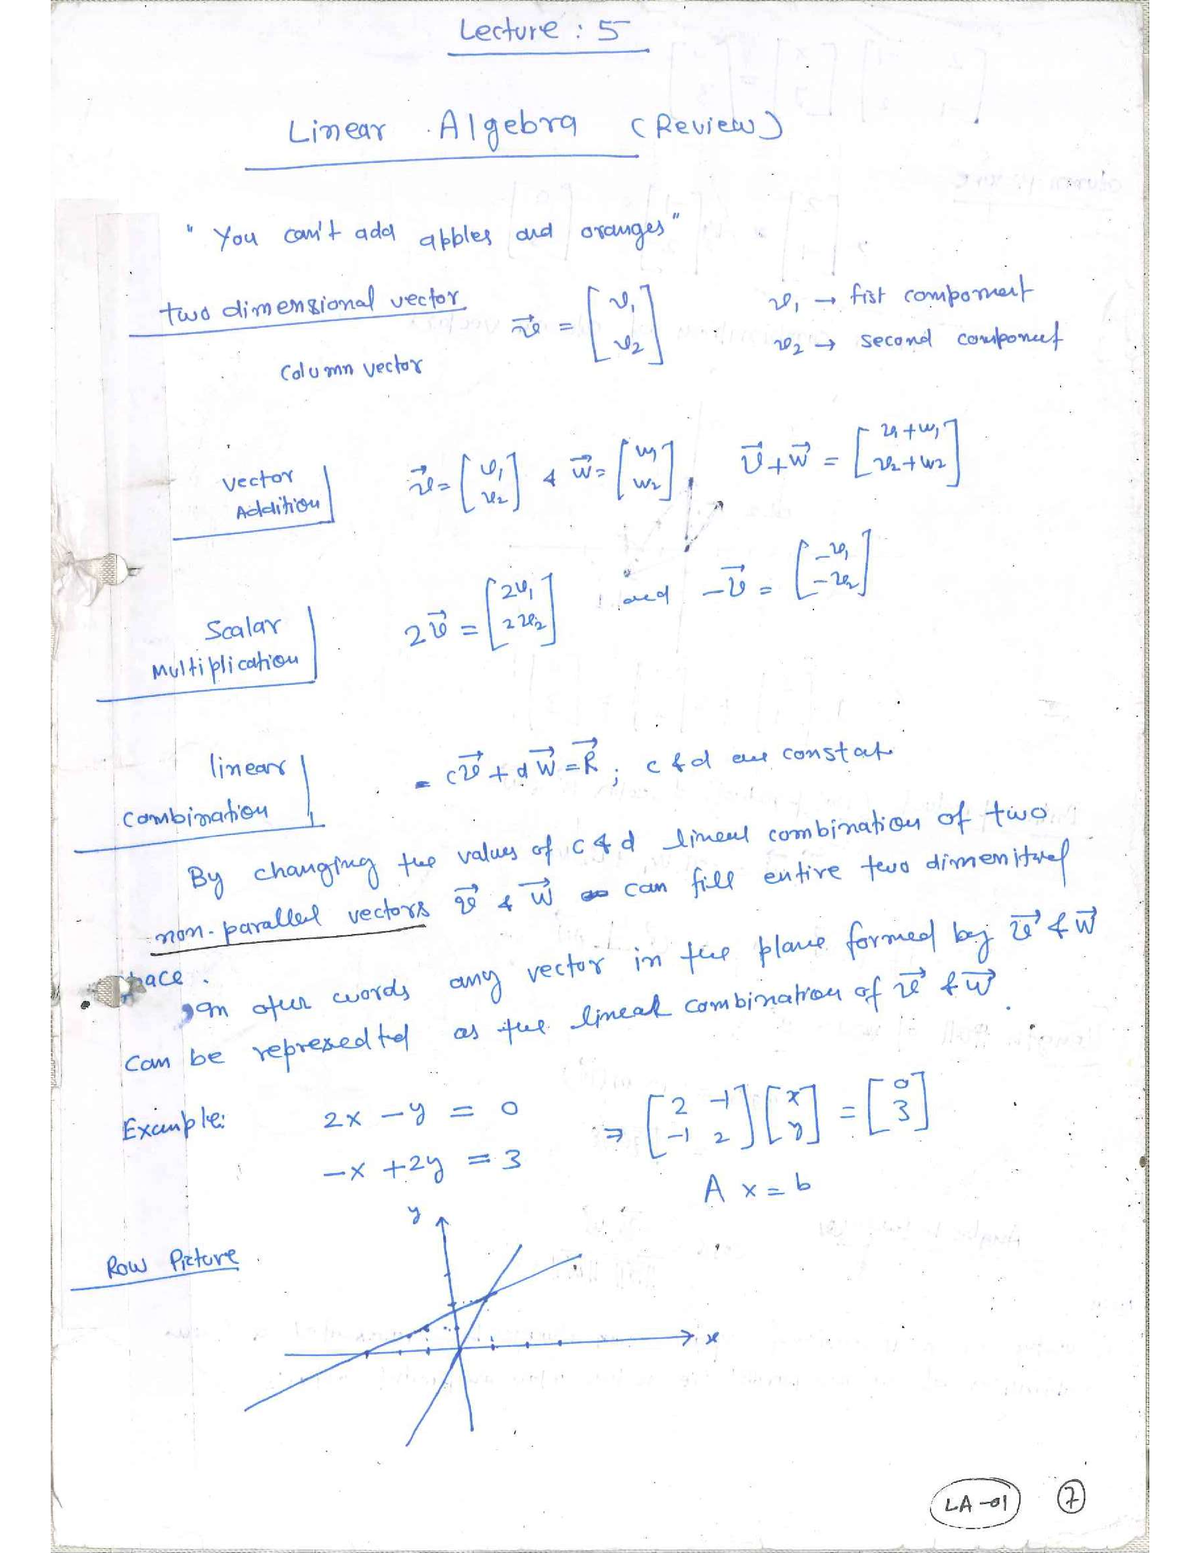 Lecture : 5
Linear Algebra (Review)
"You can't add apples and oranges"
two dimensional vector v⃗ = [v₁ v₂] v₁ → fist component
v₂ → second component
column vector
vector Addition v⃗ = [v₁ v₂] & w⃗ = [w₁ w₂], v⃗ + w⃗ = [v₁+w₁ v₂+w₂]
Scalar Multiplication 2v⃗ = [2v₁ 2v₂] and -v⃗ = [-v₁ -v₂]
linear combination = cv⃗ + dw⃗ = R⃗ ; c & d are constat
By changing the values of c & d linear combination of two
non-parallel vectors v⃗ & w⃗ can fill entire two dimenitnal
pace.
In other words any vector in the plane formed by v⃗ & w⃗
can be represedted as the linear combination of v⃗ & w⃗.
Example: 2x - y = 0 ⇒ [2 -1 -1 2] [x y] = [0 3]
-x + 2y = 3
A x = b
y
Row Picture
x
LA-01 7